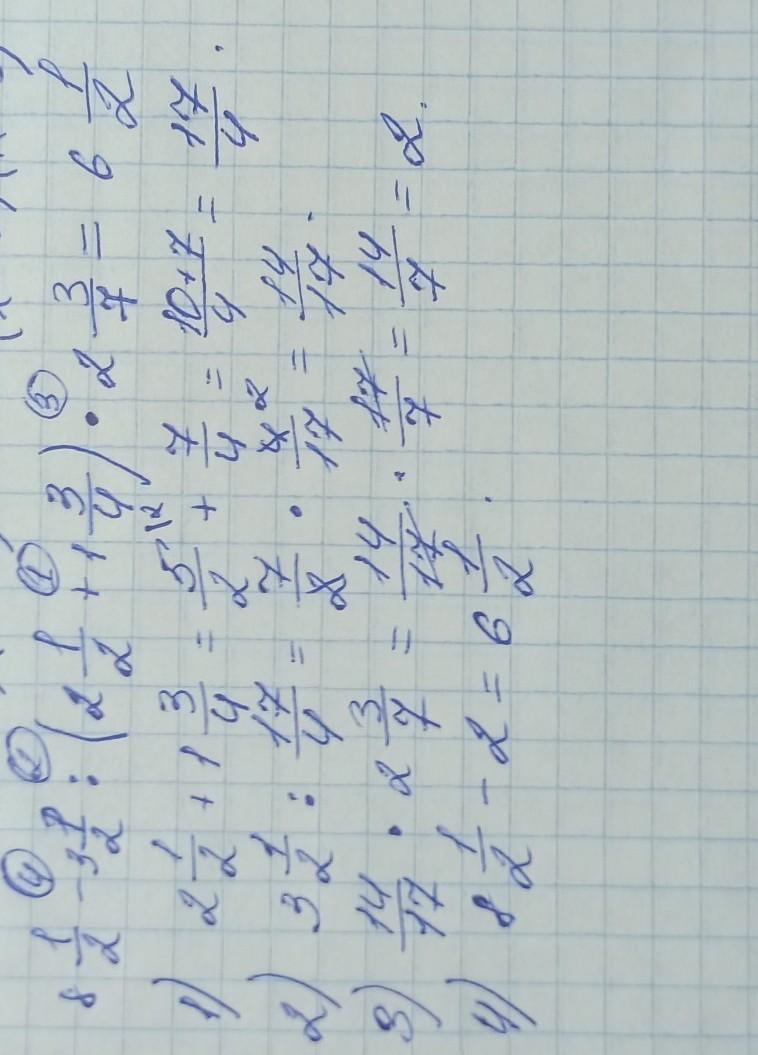 ④ ② ① ③
8 1/2 - 3 1/2 : (2 1/2 + 1 3/4) • 2 3/7 = 6 1/2
1) 2 1/2 + 1 3/4 = 5/2 \2 + 7/4 = 10+7/4 = 17/4.
2) 3 1/2 : 17/4 = 7/2 • 4 2/17 = 14/17.
3) 14/17 • 2 3/7 = 14/17 · 17/7 = 14/7 = 2.
4) 8 1/2 - 2 = 6 1/2.